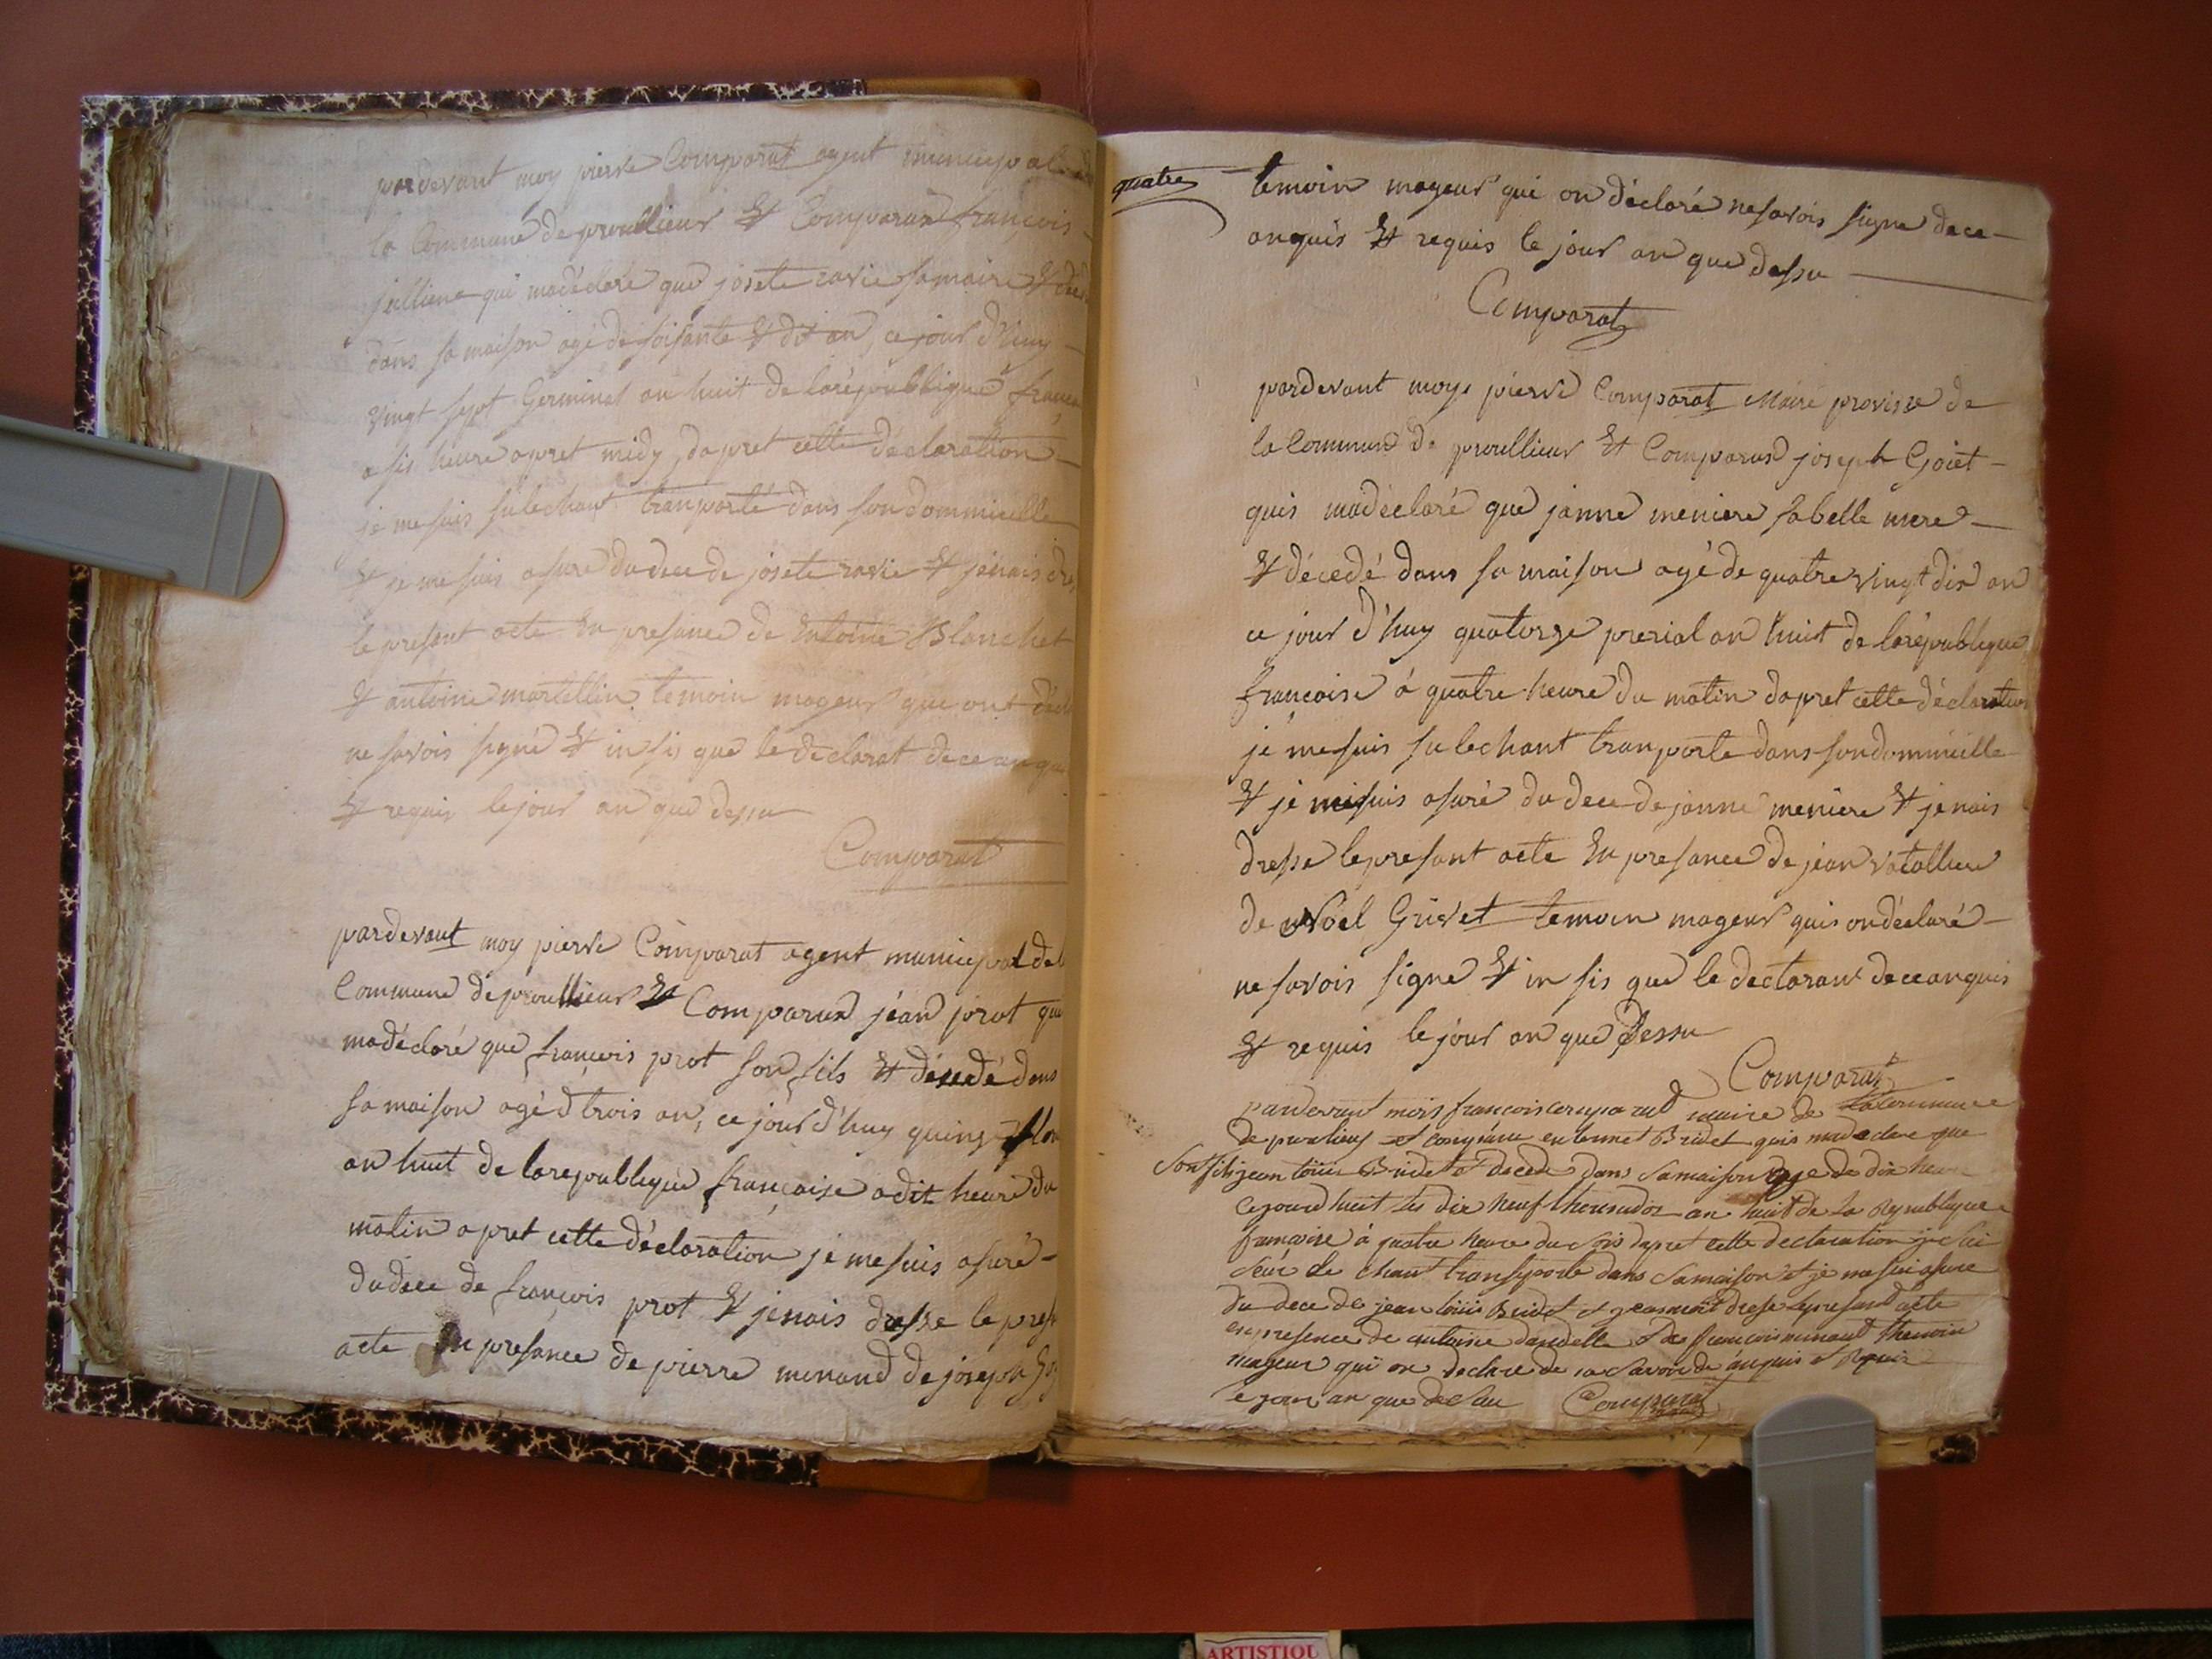 pardevant moy pierre Comparat agent municipal
la Commune de proullieur Et Comparus françois
jullienc qui madéclaré que josete ravie samaire Et
dans sa maison agé de soisante Et dix an, ce jour d'huy
vingt sept Germinal an huit de la république
a sis heure apret midy, dapret cette déclaration
je me suis sulechant tranporté dans son dommicille
Et je me suis asuré du dece de josete ravie Et jenais
le presant acte En presance de Entoine Blanchet
Et antoine martellin temoin mageur qui ont
ne savois signé Et in sis que le déclarat de ce
Et requis le jour an que dessu
Comparat
pardevant moy pierre Comparat agent municipal
Commune de proullieur Et Comparus jéan prot
madéclaré que françois prot son fils Et décedé dans
sa maison agé d trois an, ce jour d'huy quinze
an huit de la republique française a dix heure du
matin apret cette déclaration je me suis asuré
du dece de françois prot Et jenais dresse le
acte En presance de pierre menand de joseph
quatre
temoin mageur qui on déclaré ne savois signe de ce
anquis Et requis le jour an que dessu
Comparat
pardevant moy pierre Comparat Maire de
la Commune de proullieur Et Comparus joseph Goiet
quis madéclaré que janne meniere sabelle mere
Et décedé dans sa maison agé de quatre vingt dix an
ce jour d'huy quatorze prerial an huit de la république
françoise a quatre heure du matin dapret cette déclaration
je me suis sulechant tranporte dans son dommicille
Et je me suis asuré du dece de janne meniere Et jenais
dresse le presant acte En presance de jean
de Noël Grivet temoin mageur quis on déclaré
ne savois signe Et in sis que le declarant de ce anquis
Et requis le jour an que Dessu
Comparat
pardevant mois francois comparat maire de la commune
de proulieu et Bridet quis madeclare que
Son fils jean loüis Bridet et decede dans Samaison age de dix heure
cejourdhuit les dix neuf thermidor an huit de La Republique
francoise à quatre heure du Sois dapret cette declaration
de chant transporte dans Samaison et je me Sui asure
du dece de jean loüis Bridet et dresse le presant acte
en presence de antoine dandelle De francois menant themoin
mageur qui on declare de Savoir de anquis et Requis
le jour an que deSsu Comparat
ARTISTIQU